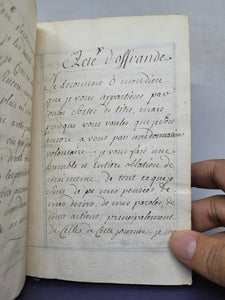 Acte d'offrande
Je Reconnois ô mondieu
que je vous appartiens par
toutes sortes de titre, mais
puisque vous voulez que je sois
encore a vous par
volontaire. je vous fais une
humble et Entiere oblation de
moimeme, de tout ce que je
suis de mes pensées de
mes desirs, de mes paroles, de
mes actions, principalement
de Celles de Cette journée, je